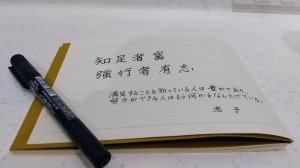 知足者富
強行者有志
満足することを知っている人は豊かであり
努力ができる人はもう何かをなしとげている。
老子